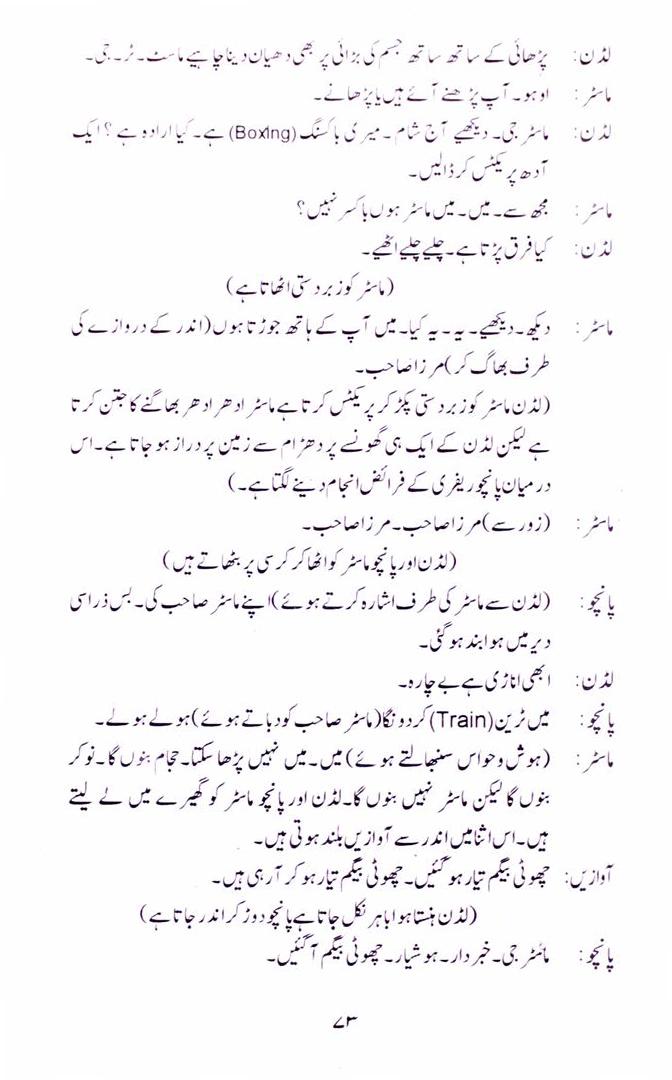 لڈن: پڑھائی کے ساتھ ساتھ جسم کی بڑائی پر بھی دھیان دینا چاہیے ماسٹ۔ٹر۔جی۔
ماسٹر: اوہو۔ آپ پڑھنے آئے ہیں یا پڑھانے۔
لڈن: ماسٹر جی۔ دیکھیے آج شام۔ میری باکسنگ (Boxing) ہے۔ کیا ارادہ ہے؟ ایک
آدھ پریکٹس کر ڈالیں۔
ماسٹر: مجھ سے۔ میں۔ میں ماسٹر ہوں باکسر نہیں؟
لڈن: کیا فرق پڑتا ہے۔ چلیے چلیے اٹھیے۔
(ماسٹر کو زبردستی اٹھاتا ہے)
ماسٹر: دیکھ۔ دیکھیے۔ یہ۔ یہ کیا۔ میں آپ کے ہاتھ جوڑتا ہوں (اندر کے دروازے کی
طرف بھاگ کر) مرزا صاحب۔
(لڈن ماسٹر کو زبردستی پکڑ کر پریکٹس کرتا ہے ماسٹر ادھر ادھر بھاگنے کا جتن کرتا
ہے لیکن لڈن کے ایک ہی گھونسے پر دھڑام سے زمین پر دراز ہو جاتا ہے۔ اس
درمیان پانچو ریفری کے فرائض انجام دینے لگتا ہے۔)
ماسٹر: (زور سے) مرزا صاحب۔ مرزا صاحب۔
(لڈن اور پانچو ماسٹر کو اٹھا کر کرسی پر بٹھاتے ہیں)
پانچو: (لڈن سے ماسٹر کی طرف اشارہ کرتے ہوئے) اپنے ماسٹر صاحب کی۔ بس ذرا سی
دیر میں ہوا بند ہو گئی۔
لڈن: ابھی اناڑی ہے بے چارہ۔
پانچو: میں ٹرین (Train) کر دونگا (ماسٹر صاحب کو دباتے ہوئے) ہولے ہولے۔
ماسٹر: (ہوش و حواس سنبھالتے ہوئے) میں۔ میں نہیں پڑھا سکتا۔ حجام بنوں گا۔ نوکر
بنوں گا لیکن ماسٹر نہیں بنوں گا۔ لڈن اور پانچو ماسٹر کو گھیرے میں لے لیتے
ہیں۔ اس اثنا میں اندر سے آوازیں بلند ہوتی ہیں۔
آوازیں: چھوٹی بیگم تیار ہو گئیں۔ چھوٹی بیگم تیار ہو کر آ رہی ہیں۔
(لڈن ہنستا ہوا باہر نکل جاتا ہے پانچو دوڑ کر اندر جاتا ہے)
پانچو: ماسٹر جی۔ خبردار۔ ہوشیار۔ چھوٹی بیگم آ گئیں۔
۷۳